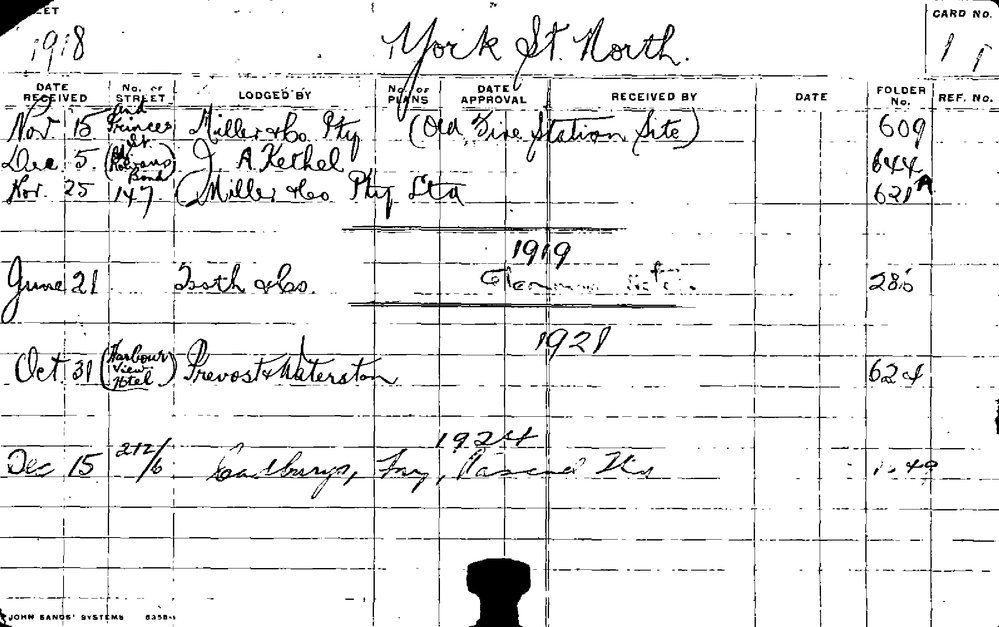 1918 York St. North. CARD NO. 11
DATE RECEIVED No. OF STREET LODGED BY No. OF PLANS DATE APPROVAL RECEIVED BY DATE FOLDER No. REF. No.
Nov 15 and Princes St. Miller & Co. Pty (Old Fire Station Site) 609
Dec 5. Bond) J. A. Kethel 644
Nov. 25 147 (Miller & Co Pty Ltd 621A
1919
June 21 Tooth & Co. 286
1921
Oct. 31 (Harbour View Hotel) Prevost & Waterston 624
1924
Dec 15 212/6 Cadburys, Fry, Pascall
JOHN SANDS' SYSTEMS